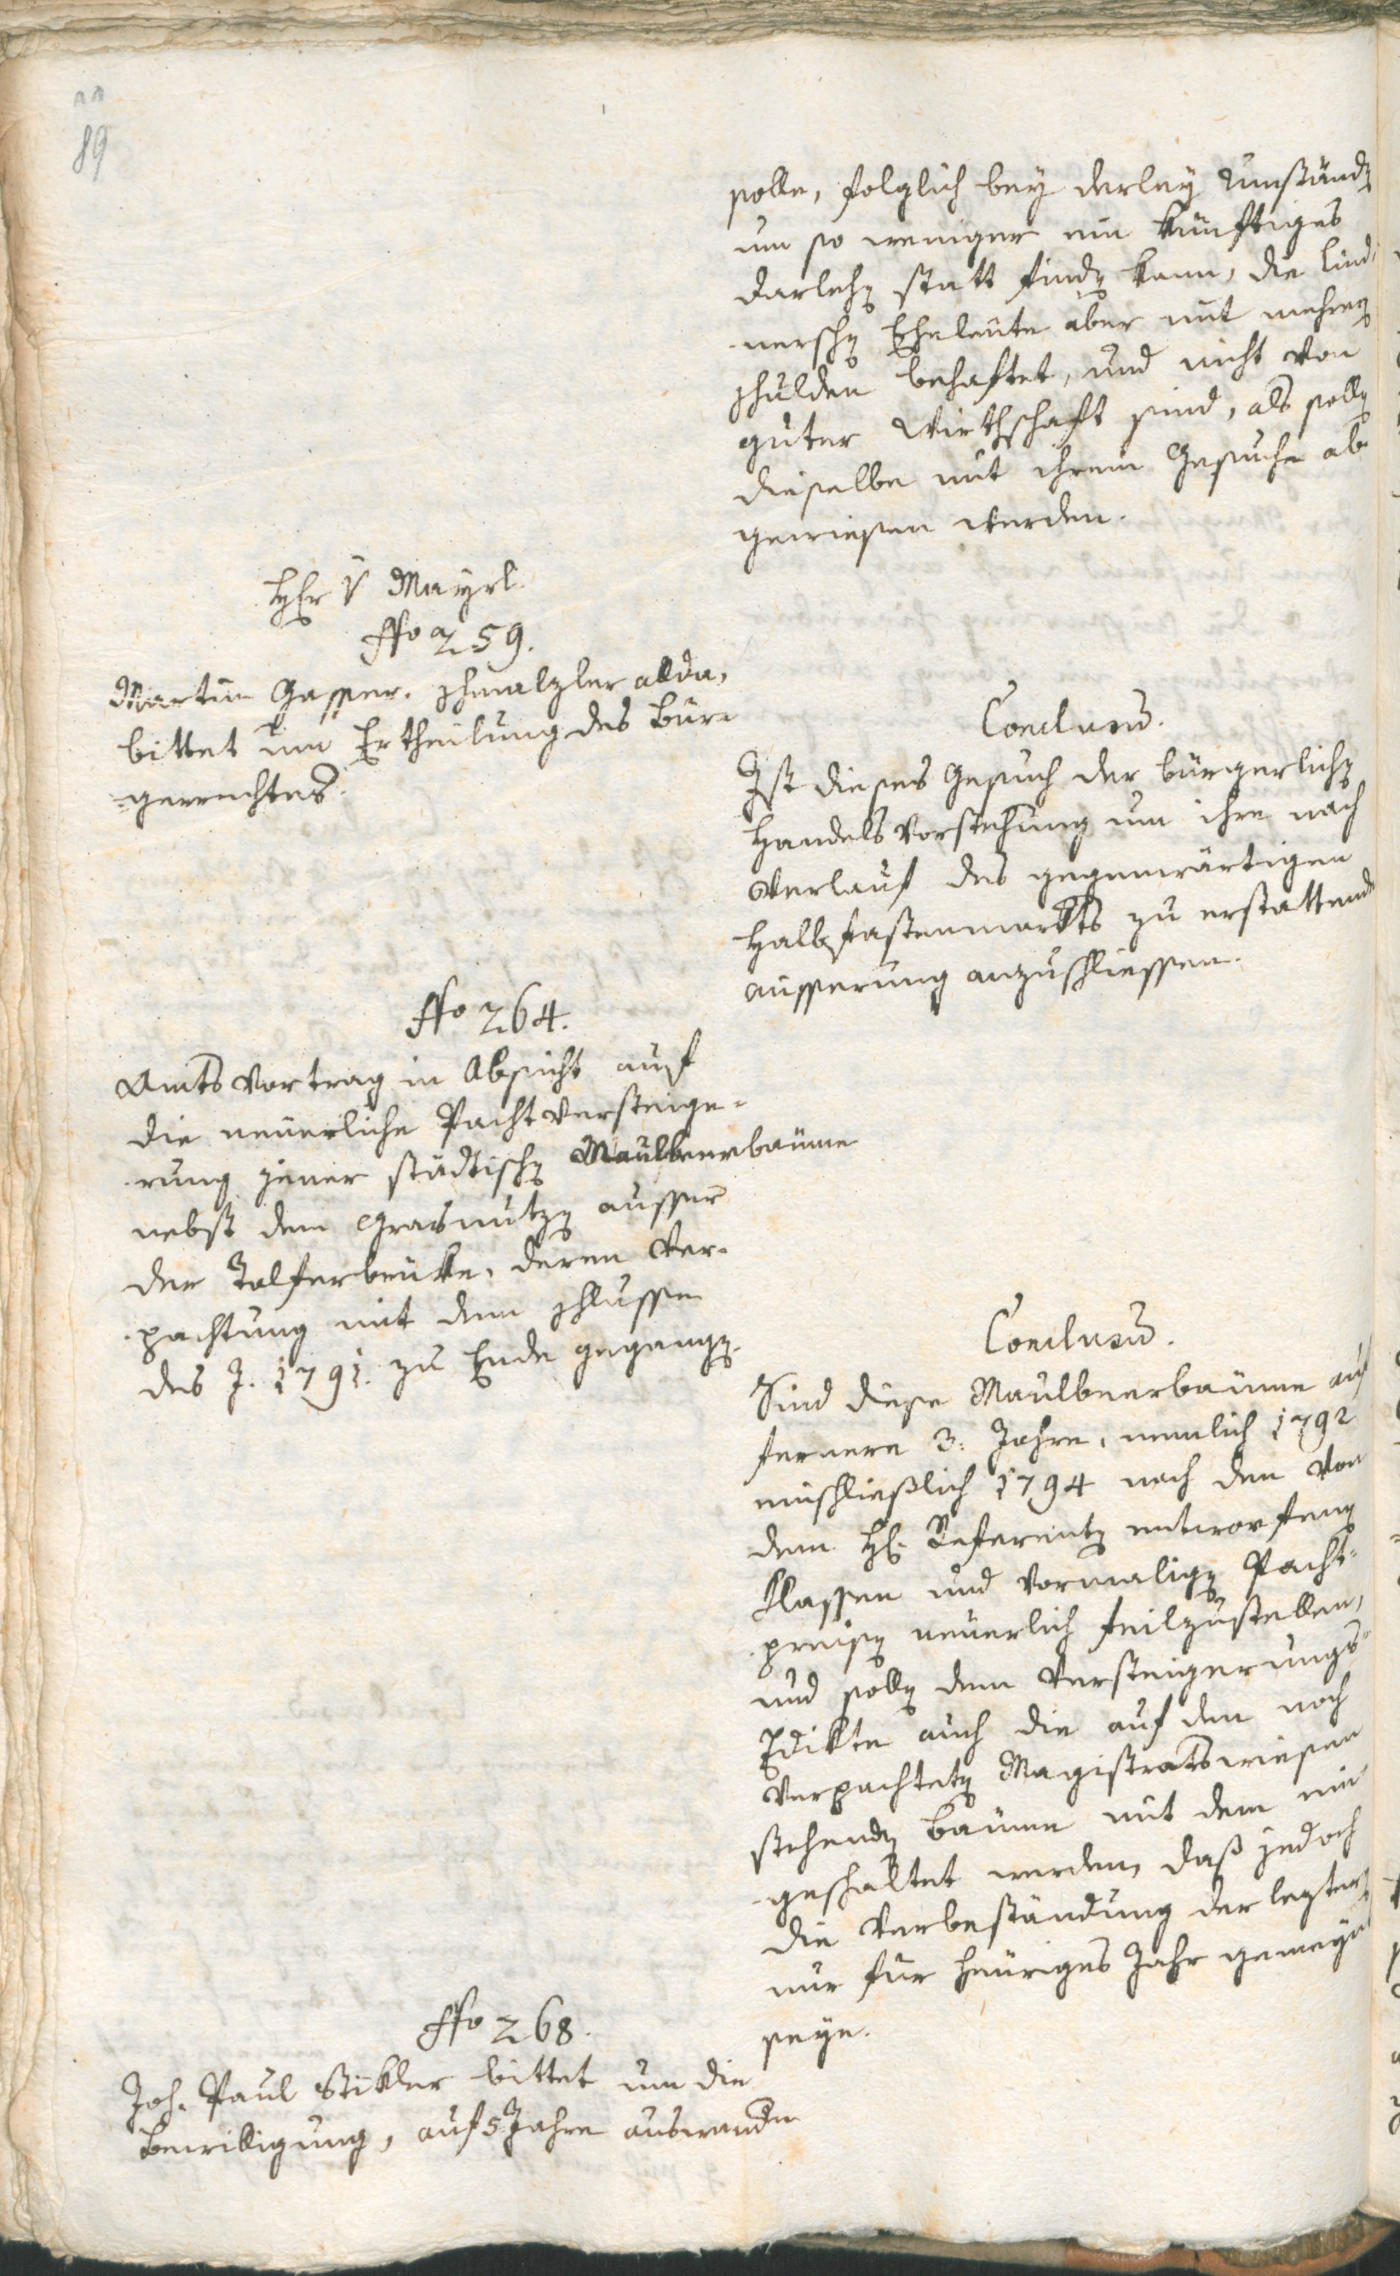 89
solle, folglich bey derley Umständen
um so weniger ein künftiges
Darlehen statt finden kann, die Lind-
nerschen Eheleute aber mit mehren
Schulden behaftet, und nicht von
guter Wirthschaft sind, als sollen
dieselbe mit ihrem Gesuche ab
gewiesen werden.
Hr v Mayrl.
Nro 259.
Martin Gasser. Schmalzler allda,
bittet um Ertheilung des Bur-
gerrechtes.
Conclusum.
Ist dieses Gesuch der bürgerlichen
Handels Vorstehung um ihre nach
Verlauf des gegenwärtigen
Halbfastenmarkts zu erstattende
äusserung anzuschliessen.
Nro 264.
Amts Vortrag in Absicht auf
die neuerliche Pachtversteige-
rung jener städtischen Maulbeerbäume
nebst dem Grasnutzen ausser
der Talferbrücke, deren Ver-
pachtung mit dem Schlusse
des J. 1791. zu Ende gegangen.
Conclusum.
Sind diese Maulbeerbäume auf
fernere 3. Jahre, nemlich 1792
einschließlich 1794 nach den von
dem H. Referenten entworfenen
Klassen und vormaligen Pacht-
preisen neuerlich feilzustellen,
und sollen dem Versteigerungs-
Edikte auch die auf den noch
verpachteten Magistratswiesen
stehenden Bäume mit dem ein
geschaltet werden, daß jedoch
die Verbeständung der leztern
nur für heuriges Jahr gemeynt
seye.
Nro 268.
Joh. Paul Stikler bittet um die
Bewilligung, auf 5 Jahre auswandern